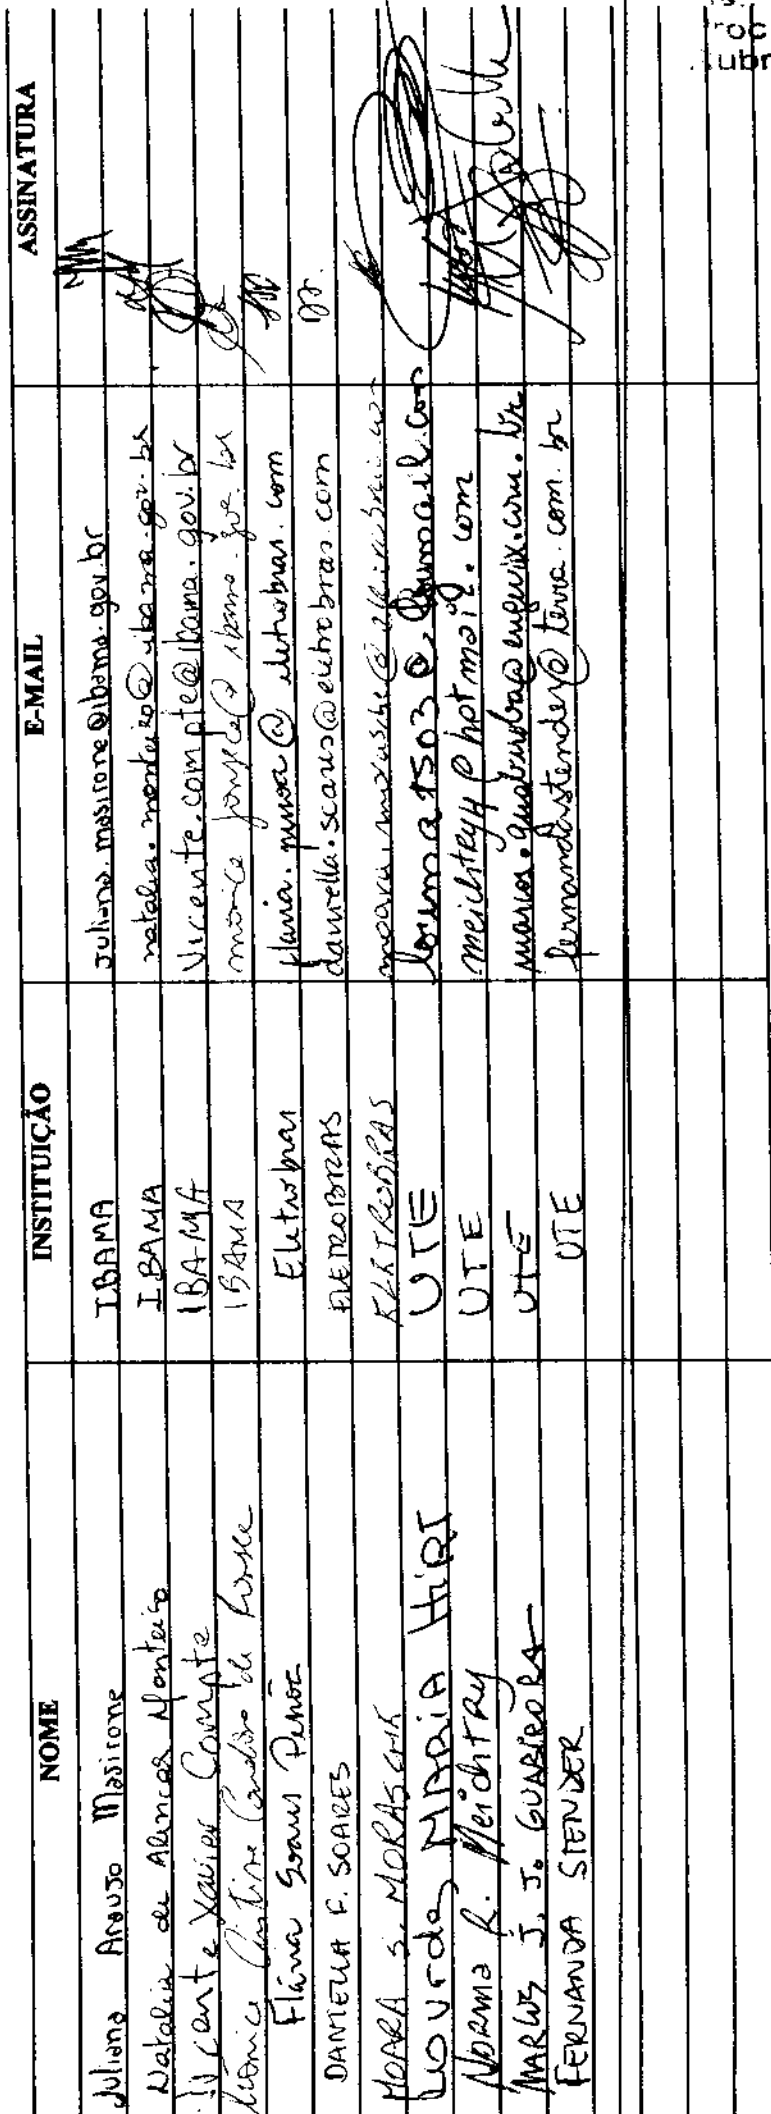 NOME INSTITUIÇÃO E-MAIL ASSINATURA
Juliana Araujo Masirone IBAMA juliana.masirone@ibama.gov.br
Natalia de Alencar Monteiro IBAMA natalia.monteiro@ibama.gov.br
Vicente Xavier Compte IBAMA Vicente.compte@ibama.gov.br
Mônica Cristina Cardoso da IBAMA
Flávia Soares Eletrobras @eletrobras.com
DANIELLA F. SOARES ELETROBRAS daniella.soares@eletrobras.com
MOARA S. MORASCHE ELETROBRAS
Lourdes MARIA HiRT UTE @hotmail.com
Norma R. Meichtry UTE meichtry4@hotmail.com
MARCOS J. J. GUABIROBA UTE marcos.guabiroba@engevix.com.br
FERNANDA STENDER UTE fernandastender@terra.com.br
roc
ubr